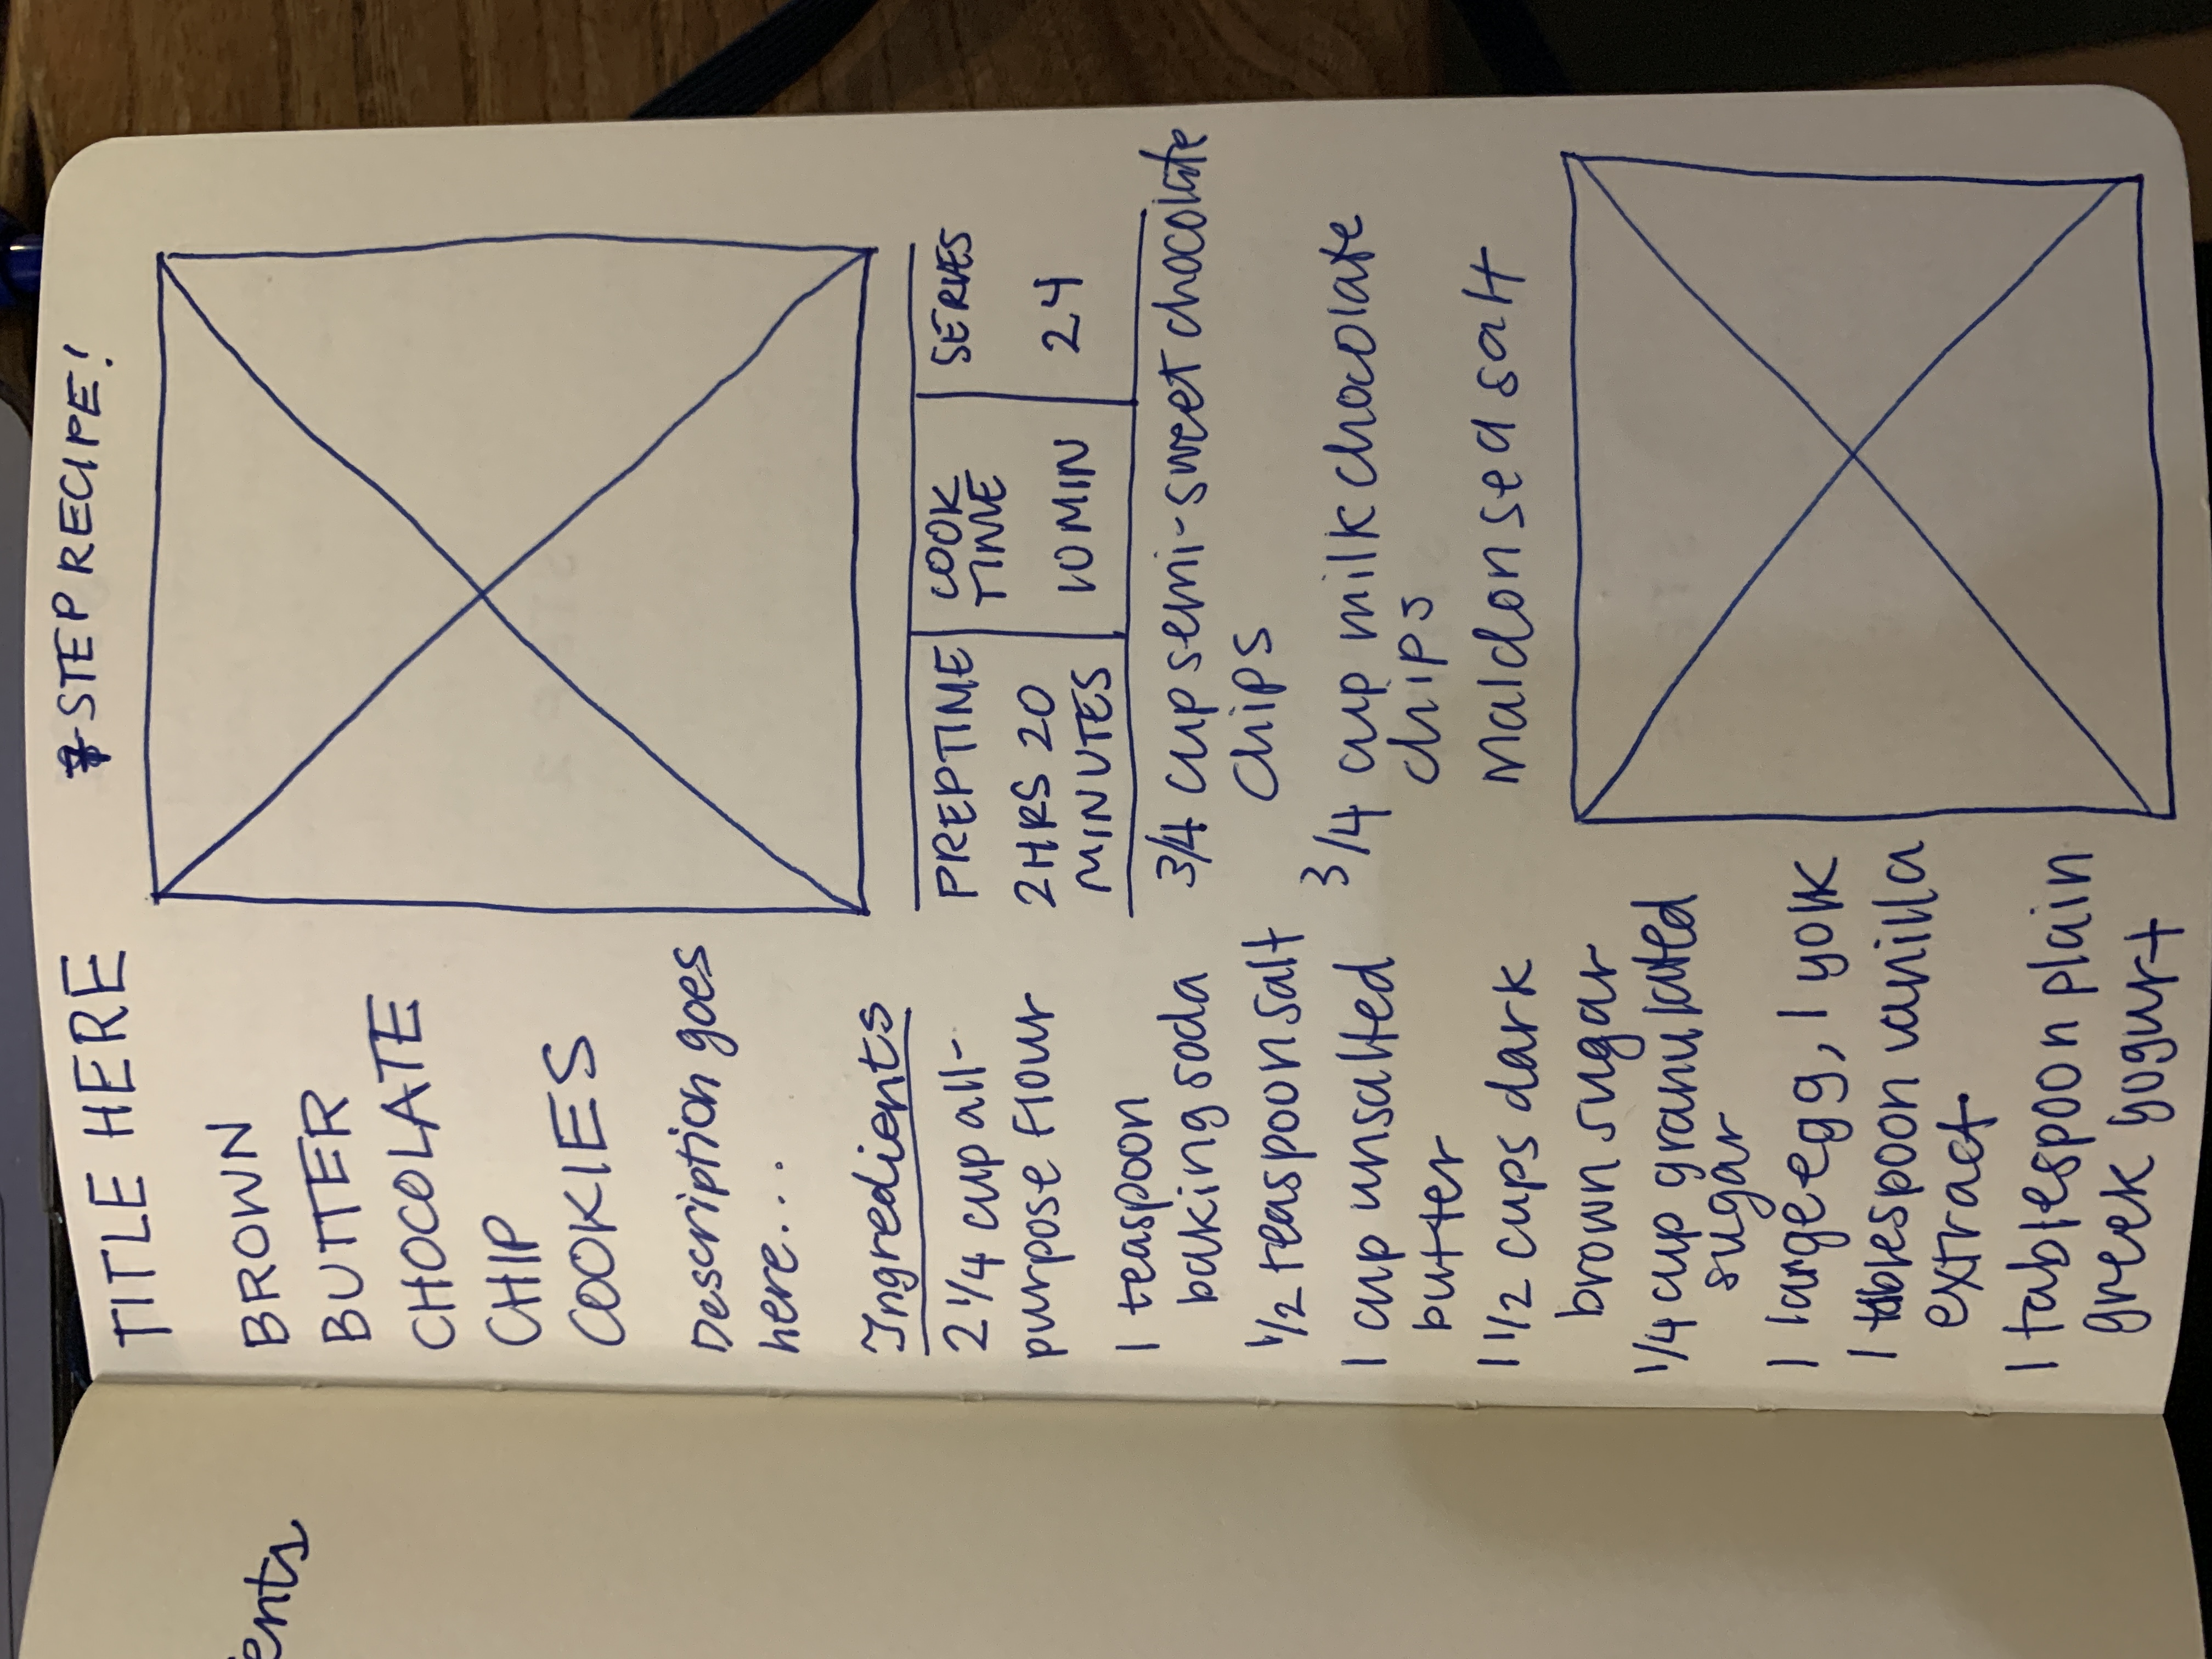 ents
TITLE HERE
STEP RECIPE!
BROWN
BUTTER
CHOCOLATE
CHIP
COOKIES
Description goes
here...
Ingredients
2 1/4 cup all-
purpose flour
1 teaspoon
baking soda
1/2 teaspoon salt
1 cup unsalted
butter
1 1/2 cups dark
brown sugar
1/4 cup granulated
sugar
1 large egg, 1 yolk
1 tablespoon vanilla
extract
1 tablespoon plain
greek yogurt
PREP TIME
2 HRS 20
MINUTES
COOK
TIME
10 MIN
SERVES
24
3/4 cup semi-sweet chocolate
chips
3/4 cup milk chocolate
chips
Maldon sea salt